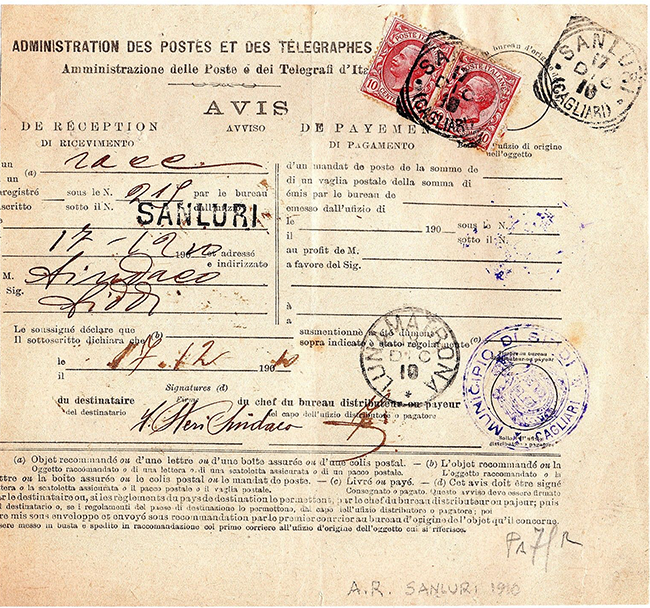 ADMINISTRATION DES POSTES ET DES TÉLÉGRAPHES
Amministrazione delle Poste e dei Telegrafi d'Ita
bureau d'orig
SANLURI
17
DIC
10
(CAGLIARI)
POSTE ITALIANE
10 CENT
SANLURI
17
DIC
10
(CAGLIARI)
AVIS
AVVISO
DE RÉCEPTION
DI RICEVIMENTO
DE PAYEMEN
DI PAGAMENTO
ufizio di origine
dell'oggetto
un (a) racc
un
nregistré sous le N. 215 par le bureau
scritto sotto il N. dall'ufizio
SANLURI
17-12 10 190 et adressé
e indirizzato
M. Sindaco
Sig. Siddi
d'un mandat de poste de la somme de
di un vaglia postale della somma di
émis par le bureau de
emesso dall'ufizio di
le 190 sous le N.
il sotto il N.
au profit de M.
a favore del Sig.
à
a
Le soussigné déclare que
Il sottoscritto dichiara che (b)
susmentionné a été dûment
sopra indicato è stato regolarmente (c)
le 17.12 190 10
il
LUNAMATRONA
DIC
10
MUNICIPIO DI SIDDI
CAGLIARI
Signatures (d)
Firme
du destinataire
del destinatario
du chef du bureau distributeur ou payeur
del capo dell'ufizio distributore o pagatore
Sindaco
(a) Objet recommandé ou d'une lettre ou d'une boîte assurée ou d'une colis postal. — (b) L'objet recommandé ou la
Oggetto raccomandato o di una lettera o di una scatoletta assicurata o di un pacco postale. L'oggetto raccomandato o la
ttre ou la boîte assurée ou le colis postal ou le mandat de poste. — (c) Livré ou payé. — (d) Cet avis doit être signé
lettera o la scatoletta assicurata o il pacco postale o il vaglia postale. Consegnato o pagato. Questo avviso deve essere firmato
ar le destinataire ou, si les règlements du pays de destination le permettent, par le chef du bureau distributeur ou payeur; puis
l destinatario o, se i regolamenti del paese di destinazione lo permettono, dal capo dell'ufizio distributore o pagatore; poi
re mis sous enveloppe et envoyé sous recommandation par le premier courrier au bureau d'origine de l'objet qu'il concerne.
sere messo in busta e spedito in raccomandazione col primo corriere all'ufizio d'origine dell'oggetto cui si riferisce.
A.R. SANLURI 1910